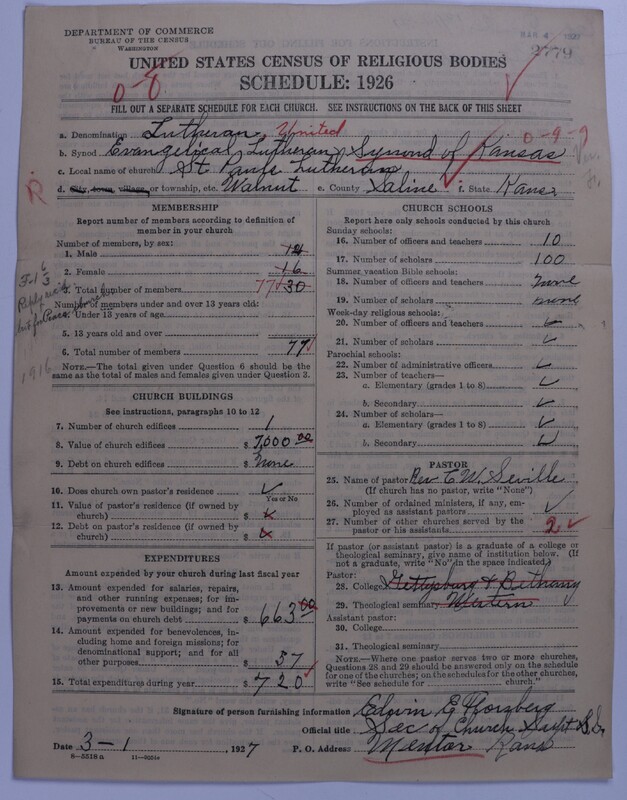 DEPARTMENT OF COMMERCE
BUREAU OF THE CENSUS
WASHINGTON
MAR 4 1927
2779
UNITED STATES CENSUS OF RELIGIOUS BODIES
SCHEDULE: 1926
0-8
FILL OUT A SEPARATE SCHEDULE FOR EACH CHURCH. SEE INSTRUCTIONS ON THE BACK OF THIS SHEET
a. Denomination Lutheran, United
0-9-9
b. Synod Evangelical Lutheran Synond of Kansas
c. Local name of church St Pauls Lutheran
d. City, town, village, or township, etc. Walnut e. County Saline f. State Kans.
R
MEMBERSHIP
Report number of members according to definition of
member in your church
Number of members, by sex:
1. Male 14
2. Female 16
3. Total number of members 77 30
Number of members under and over 13 years old:
4. Under 13 years of age
5. 13 years old and over
6. Total number of members 77
NOTE.—The total given under Question 6 should be
same as the total of males and females given under Question 3.
1916
CHURCH BUILDINGS
See instructions, paragraphs 10 to 12
7. Number of church edifices 1
8. Value of church edifices $ 7,000 00
9. Debt on church edifices $ None
10. Does church own pastor's residence ✓
Yes or No
11. Value of pastor's residence (if owned by
church) $ x
12. Debt on pastor's residence (if owned by
church) $ x
EXPENDITURES
Amount expended by your church during last fiscal year
13. Amount expended for salaries, repairs,
and other running expenses; for im-
provements or new buildings; and for
payments on church debt $ 663 00
14. Amount expended for benevolences,
including home and foreign missions; for
denominational support; and for all
other purposes $ 57
15. Total expenditures during year $ 720
CHURCH SCHOOLS
Report here only schools conducted by this church
Sunday schools:
16. Number of officers and teachers 10
17. Number of scholars 100
Summer vacation Bible schools:
18. Number of officers and teachers none
19. Number of scholars none
Week-day religious schools:
20. Number of officers and teachers ✓
21. Number of scholars ✓
Parochial schools:
22. Number of administrative officers ✓
23. Number of teachers—
a. Elementary (grades 1 to 8) ✓
b. Secondary ✓
24. Number of scholars—
a. Elementary (grades 1 to 8) ✓
b. Secondary ✓
PASTOR
25. Name of pastor Rev. C. W. Seville
(If church has no pastor, write "None")
26. Number of ordained ministers, if any, em-
ployed as assistant pastors ✓
27. Number of other churches served by the
pastor or his assistants 2 ✓
If pastor (or assistant pastor) is a graduate of a college or
theological seminary, give name of institution below. (If
not a graduate, write "No" in the space indicated)
Pastor:
28. College Gettysburg & Bethany
29. Theological seminary Western
Assistant pastor:
30. College
31. Theological seminary
NOTE.—Where one pastor serves two or more churches,
Questions 28 and 29 should be answered only on the schedule
for one of the churches; on the schedules for the other churches,
write "See schedule for church."
Signature of person furnishing information Edwin E.
Official title Sec of Church Supt S.S.
Date 3-1, 1927 P. O. Address Mentor Kans
8—5518 a